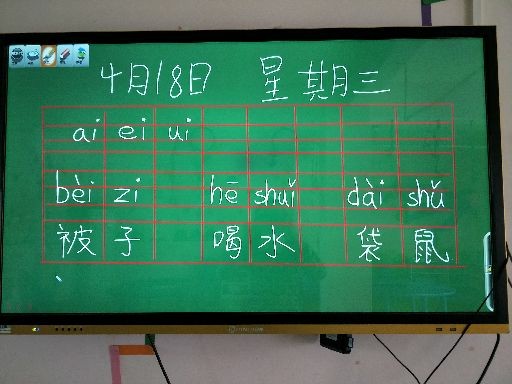 4月18日 星期三
ai ei ui
bèi zi hē shuǐ dài shǔ
被子 喝水 袋鼠